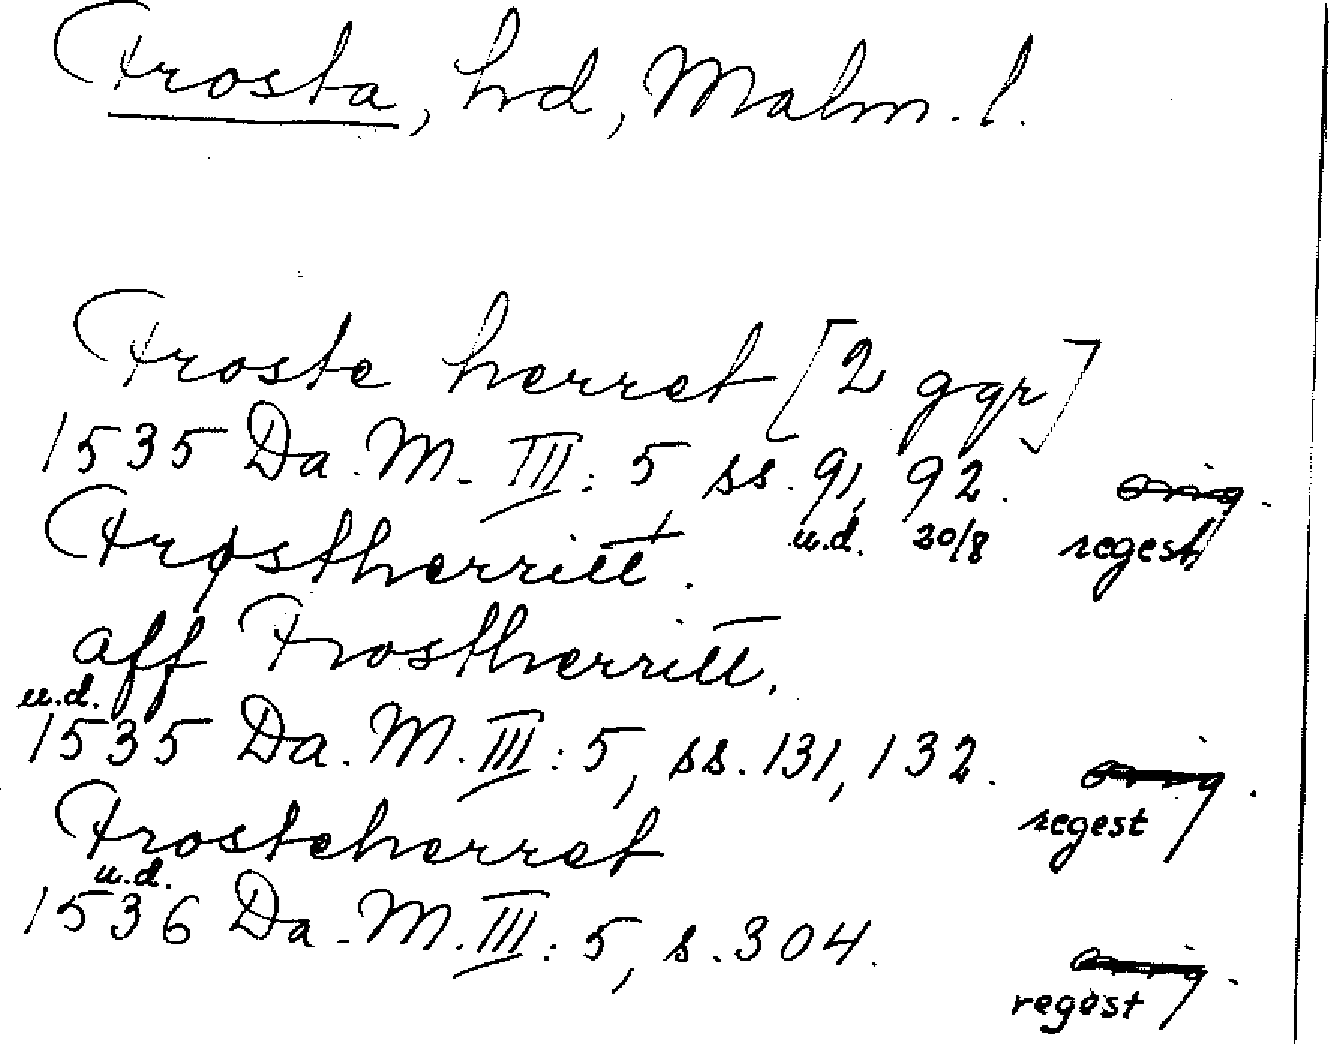 Frosta, hd, Malm. l.
Froste herret [2 ggr]
1535 Da. M. III: 5 ss. 91, 92. orig.
u.d. 20/8 regest
Frøstherritt.
aff Frostherritt.
u.d.
1535 Da. M. III: 5, ss. 131, 132. orig.
regest
Frosteherret
u.d.
1536 Da. M. III: 5, s. 304. orig.
regest